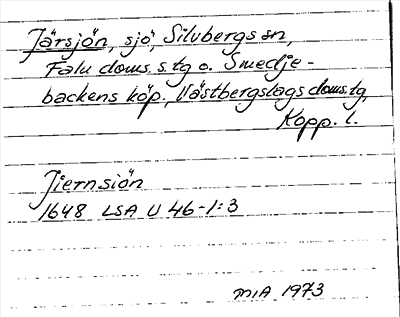 Järsjön, sjö, Silvbergs sn,
Falu doms.s.tg o. Smedje-
backens köp., Västbergslags doms.tg,
Kopp. l.
Jiernsiön
1648 LSA U 46-1:3
MIA 1973